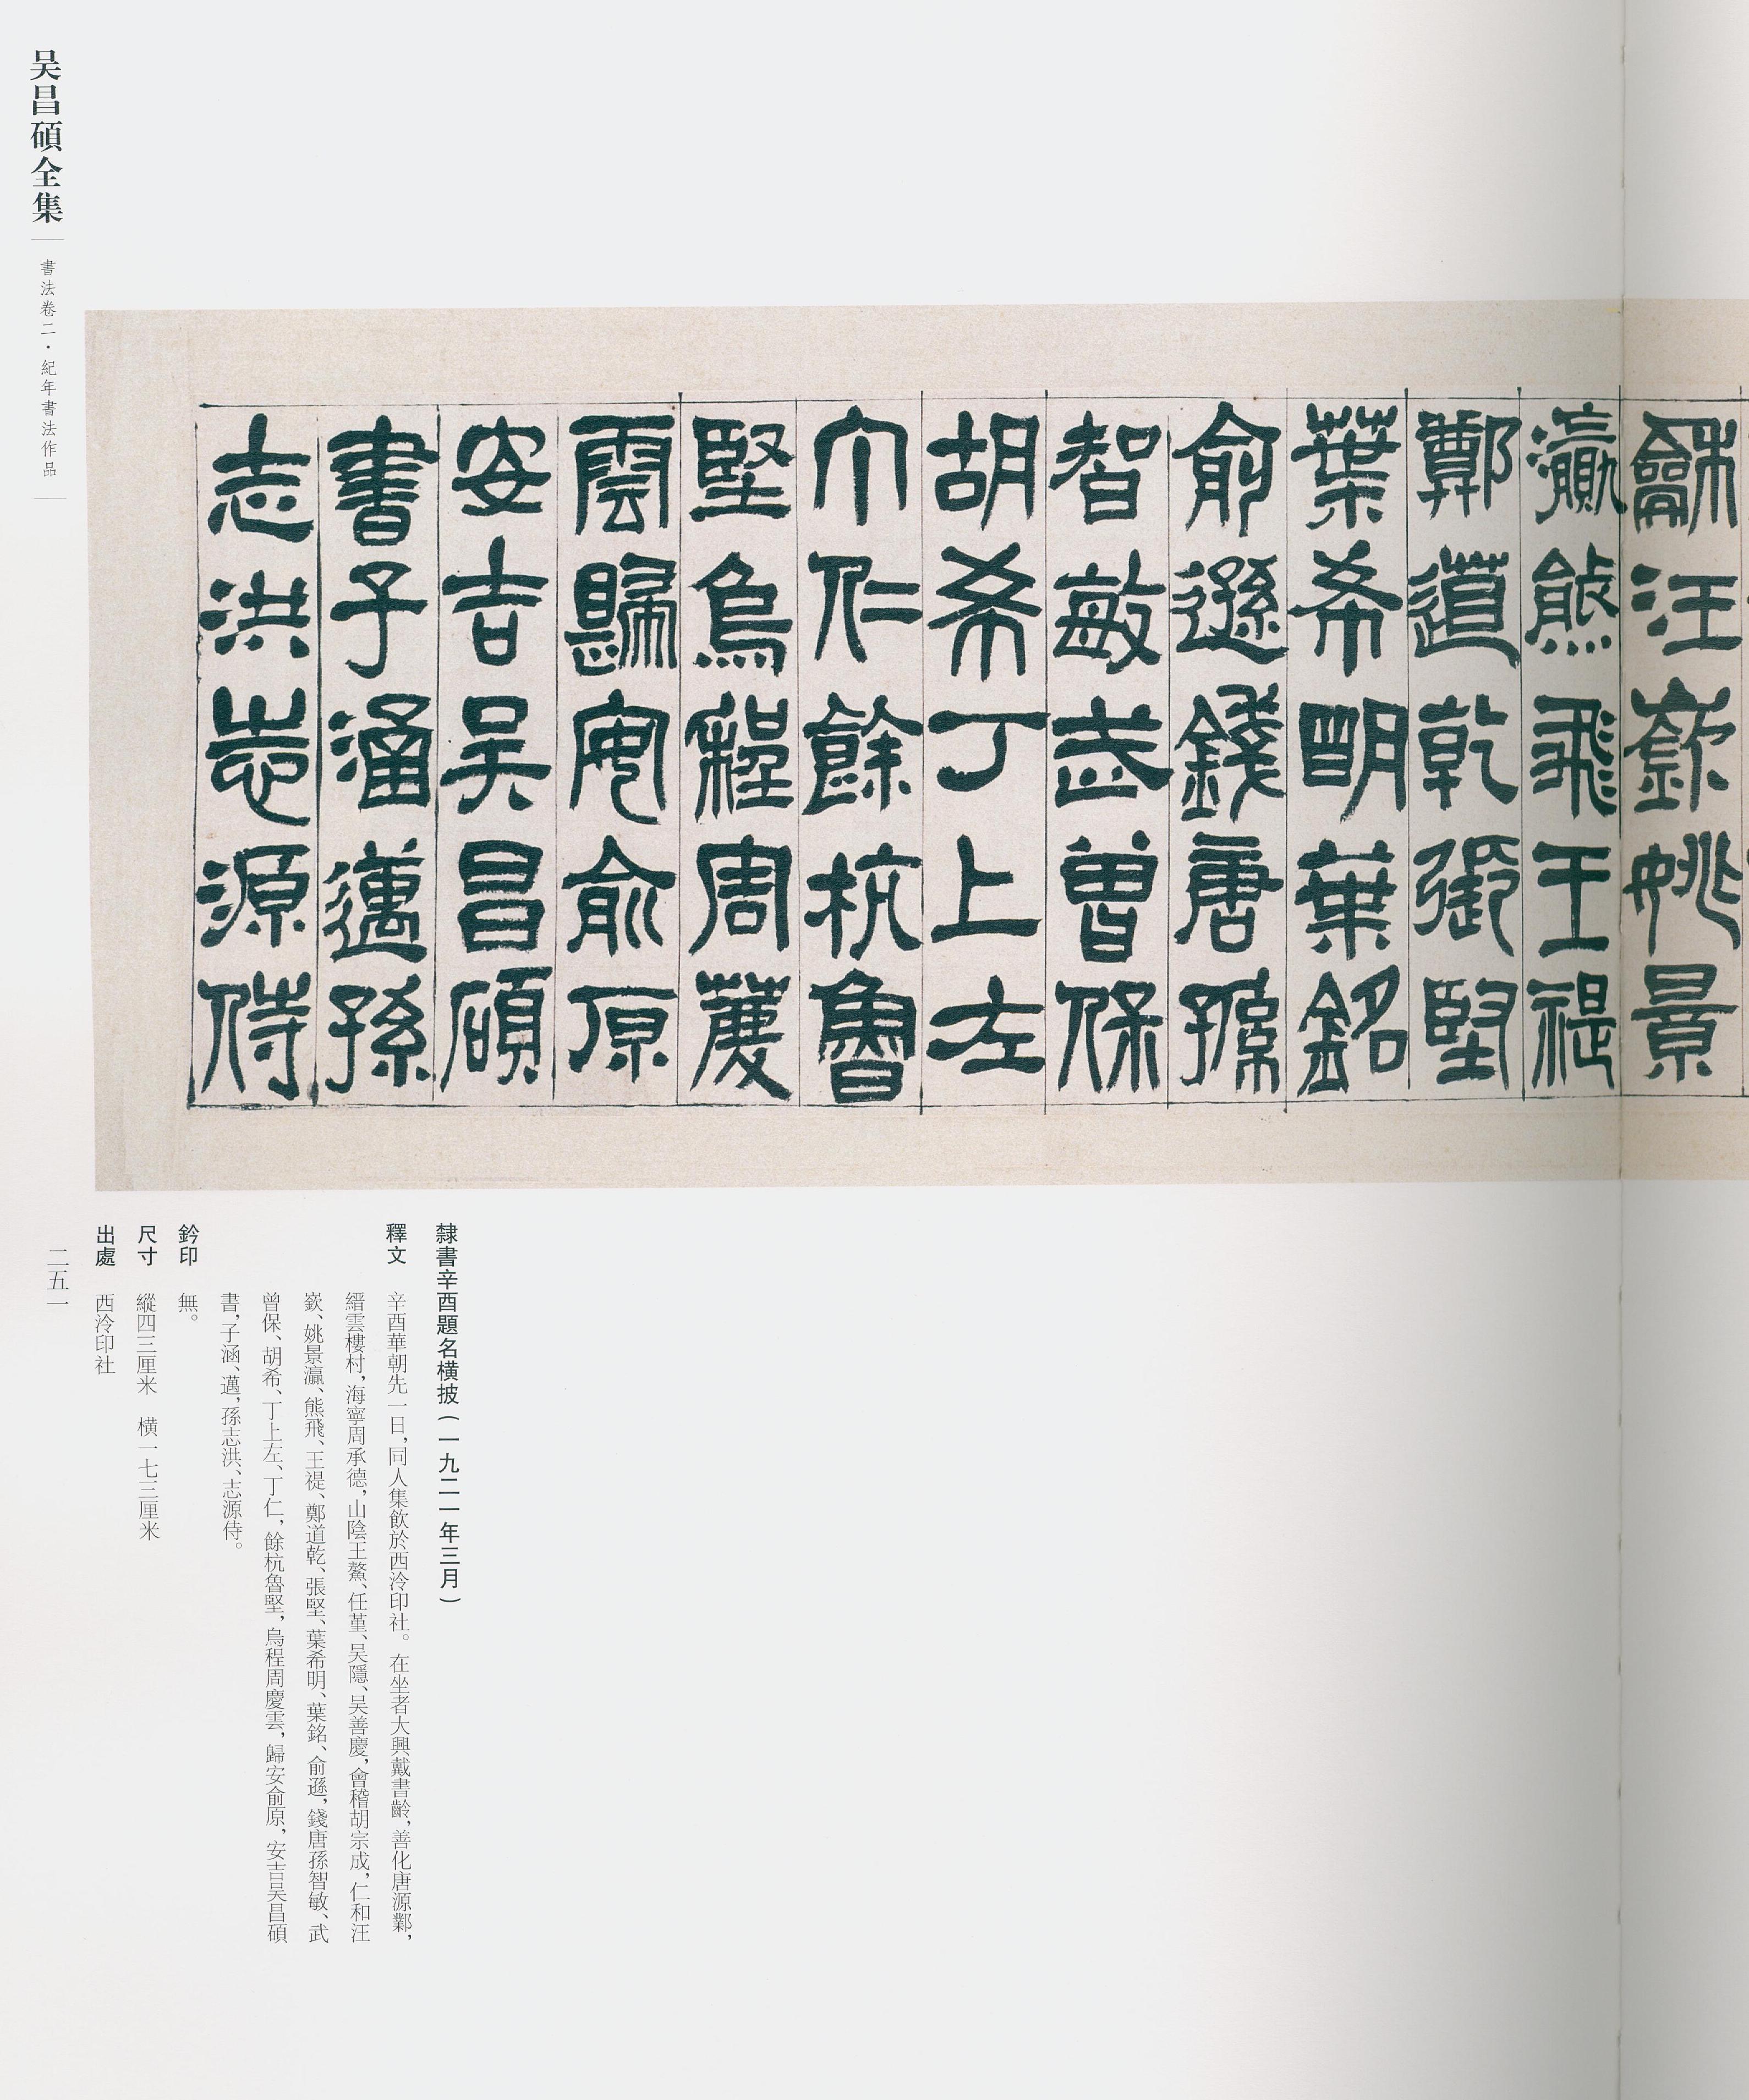 吴昌碩全集
書法卷二・紀年書法作品
龢汪嶔姚景
瀛熊飛王禔
鄭道乾張堅
葉希朙葉銘
俞遜錢唐孫
智敏武曾保
胡希丁上左
丁仁餘杭魯
堅烏程周慶
雲歸安俞原
安吉吴昌碩
書子涵邁孫
志洪志源侍
隸書辛酉題名橫披(一九二一年三月)
釋文 辛酉華朝先一日,同人集飲於西泠印社。在坐者大興戴書齡,善化唐源鄴,
縉雲樓村,海寧周承德,山陰王鰲、任堇、吴隱、吴善慶,會稽胡宗成,仁和汪
嶔、姚景瀛、熊飛、王禔、鄭道乾、張堅、葉希明、葉銘、俞遜,錢唐孫智敏、武
曾保、胡希、丁上左、丁仁,餘杭魯堅,烏程周慶雲,歸安俞原,安吉吴昌碩
書,子涵、邁,孫志洪、志源侍。
鈐印 無。
尺寸 縱四三厘米 橫一七三厘米
出處 西泠印社
二五一